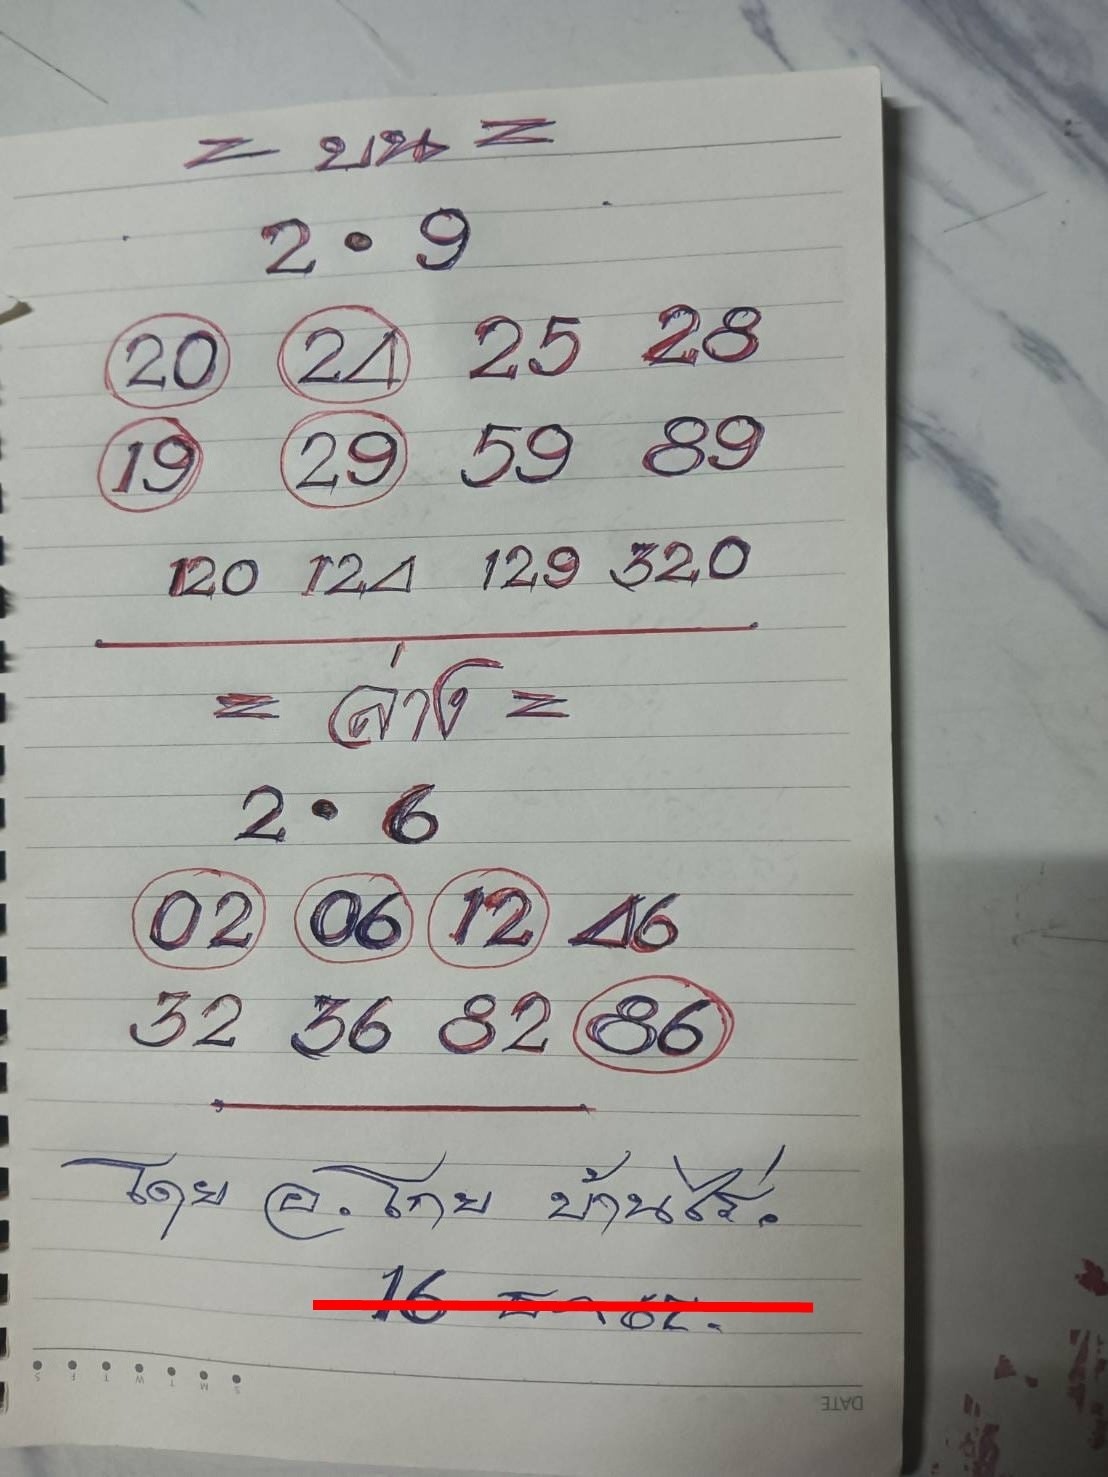 = บน =
2 • 9
20 24 25 28
19 29 59 89
120 124 129 320
= ล่าง =
2 • 6
02 06 12 46
32 36 82 86
โดย อ. โกย บ้านไร่.
16
S F T W T M S
DATE